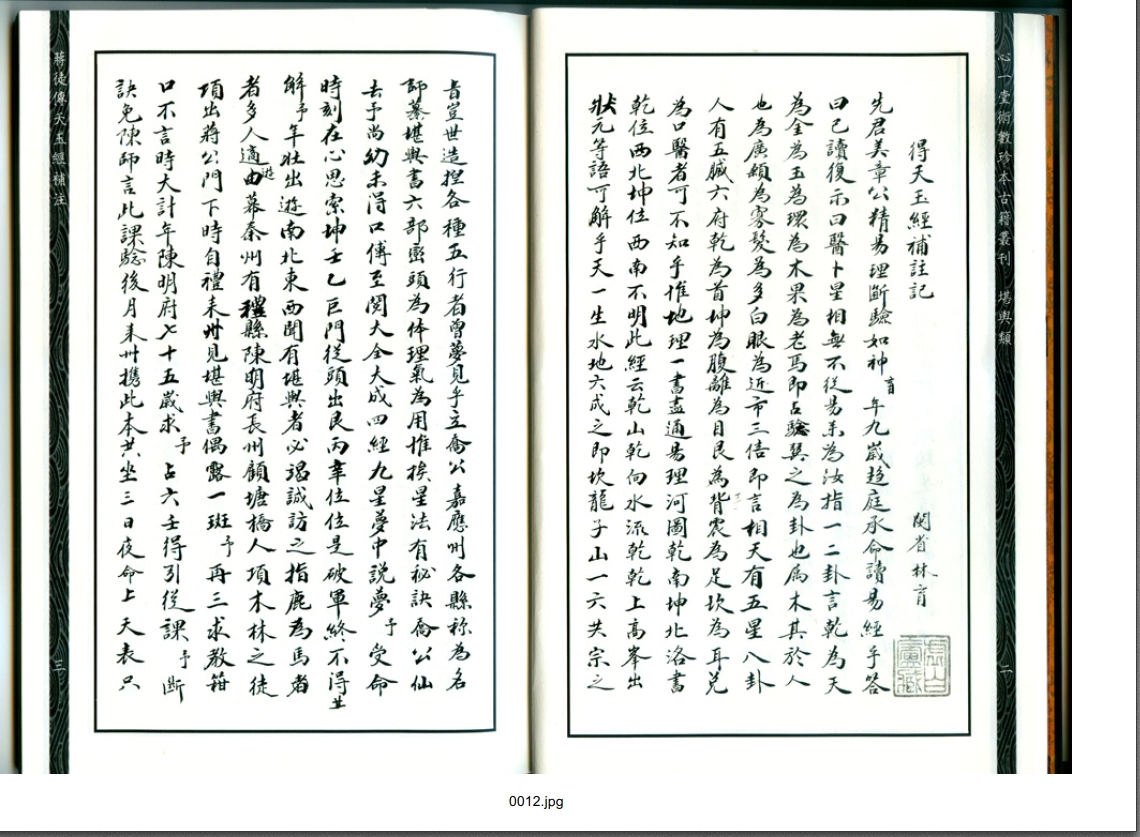 心一堂術數珍本古籍叢刊 堪輿類
二
得天玉經補註記
閩省林育
先君美章公精易理斷驗如神育年九歲趨庭承命讀易經乎答
曰已讀復示曰醫卜星相無不從易系為汝指一二卦言乾為天
為金為玉為環為木果為老馬即占驗巽之為卦也為木其於人
也為廣顙為寡髮為多白眼為近市三倍即言相天有五星八卦
人有五臟六府乾為首坤為腹離為目艮為背震為足坎為耳兌
為口醫者可不知乎惟地理一書盡通易理河圖乾南坤北洛書
乾位西北坤位西南不明此經云乾山乾向水流乾乾上高峯出
狀元等語可解乎天一生水地六成之即坎龍子山一六共宗之
音豈世造捏各種五行者曾夢見乎立喬公嘉應州各縣称為名
師纂堪輿書六部巒頭為体理氣為用惟挨星法有秘訣喬公仙
去予尚幼未得口傳至閱大全大成四經九星夢中說夢予受命
時刻在心思索坤壬乙巨門從頭出艮丙辛位位是破軍終不得其
解予年壯出遊南北東西聞有堪輿者必竭誠訪之指鹿為馬者
者多人適遊由幕秦州有禮縣陳明府長州顧塘橋人項木林之徒
項出蔣公門下時自禮來州見堪輿書偶露一斑予再三求教箝
口不言時大計年陳明府七十五歲求予占六壬得引從課予斷
訣免陳師言此課驗後月來州携此本共坐三日夜命上天表只
蔣徒傳天玉經補注
三
虛白廬藏
0012.jpg